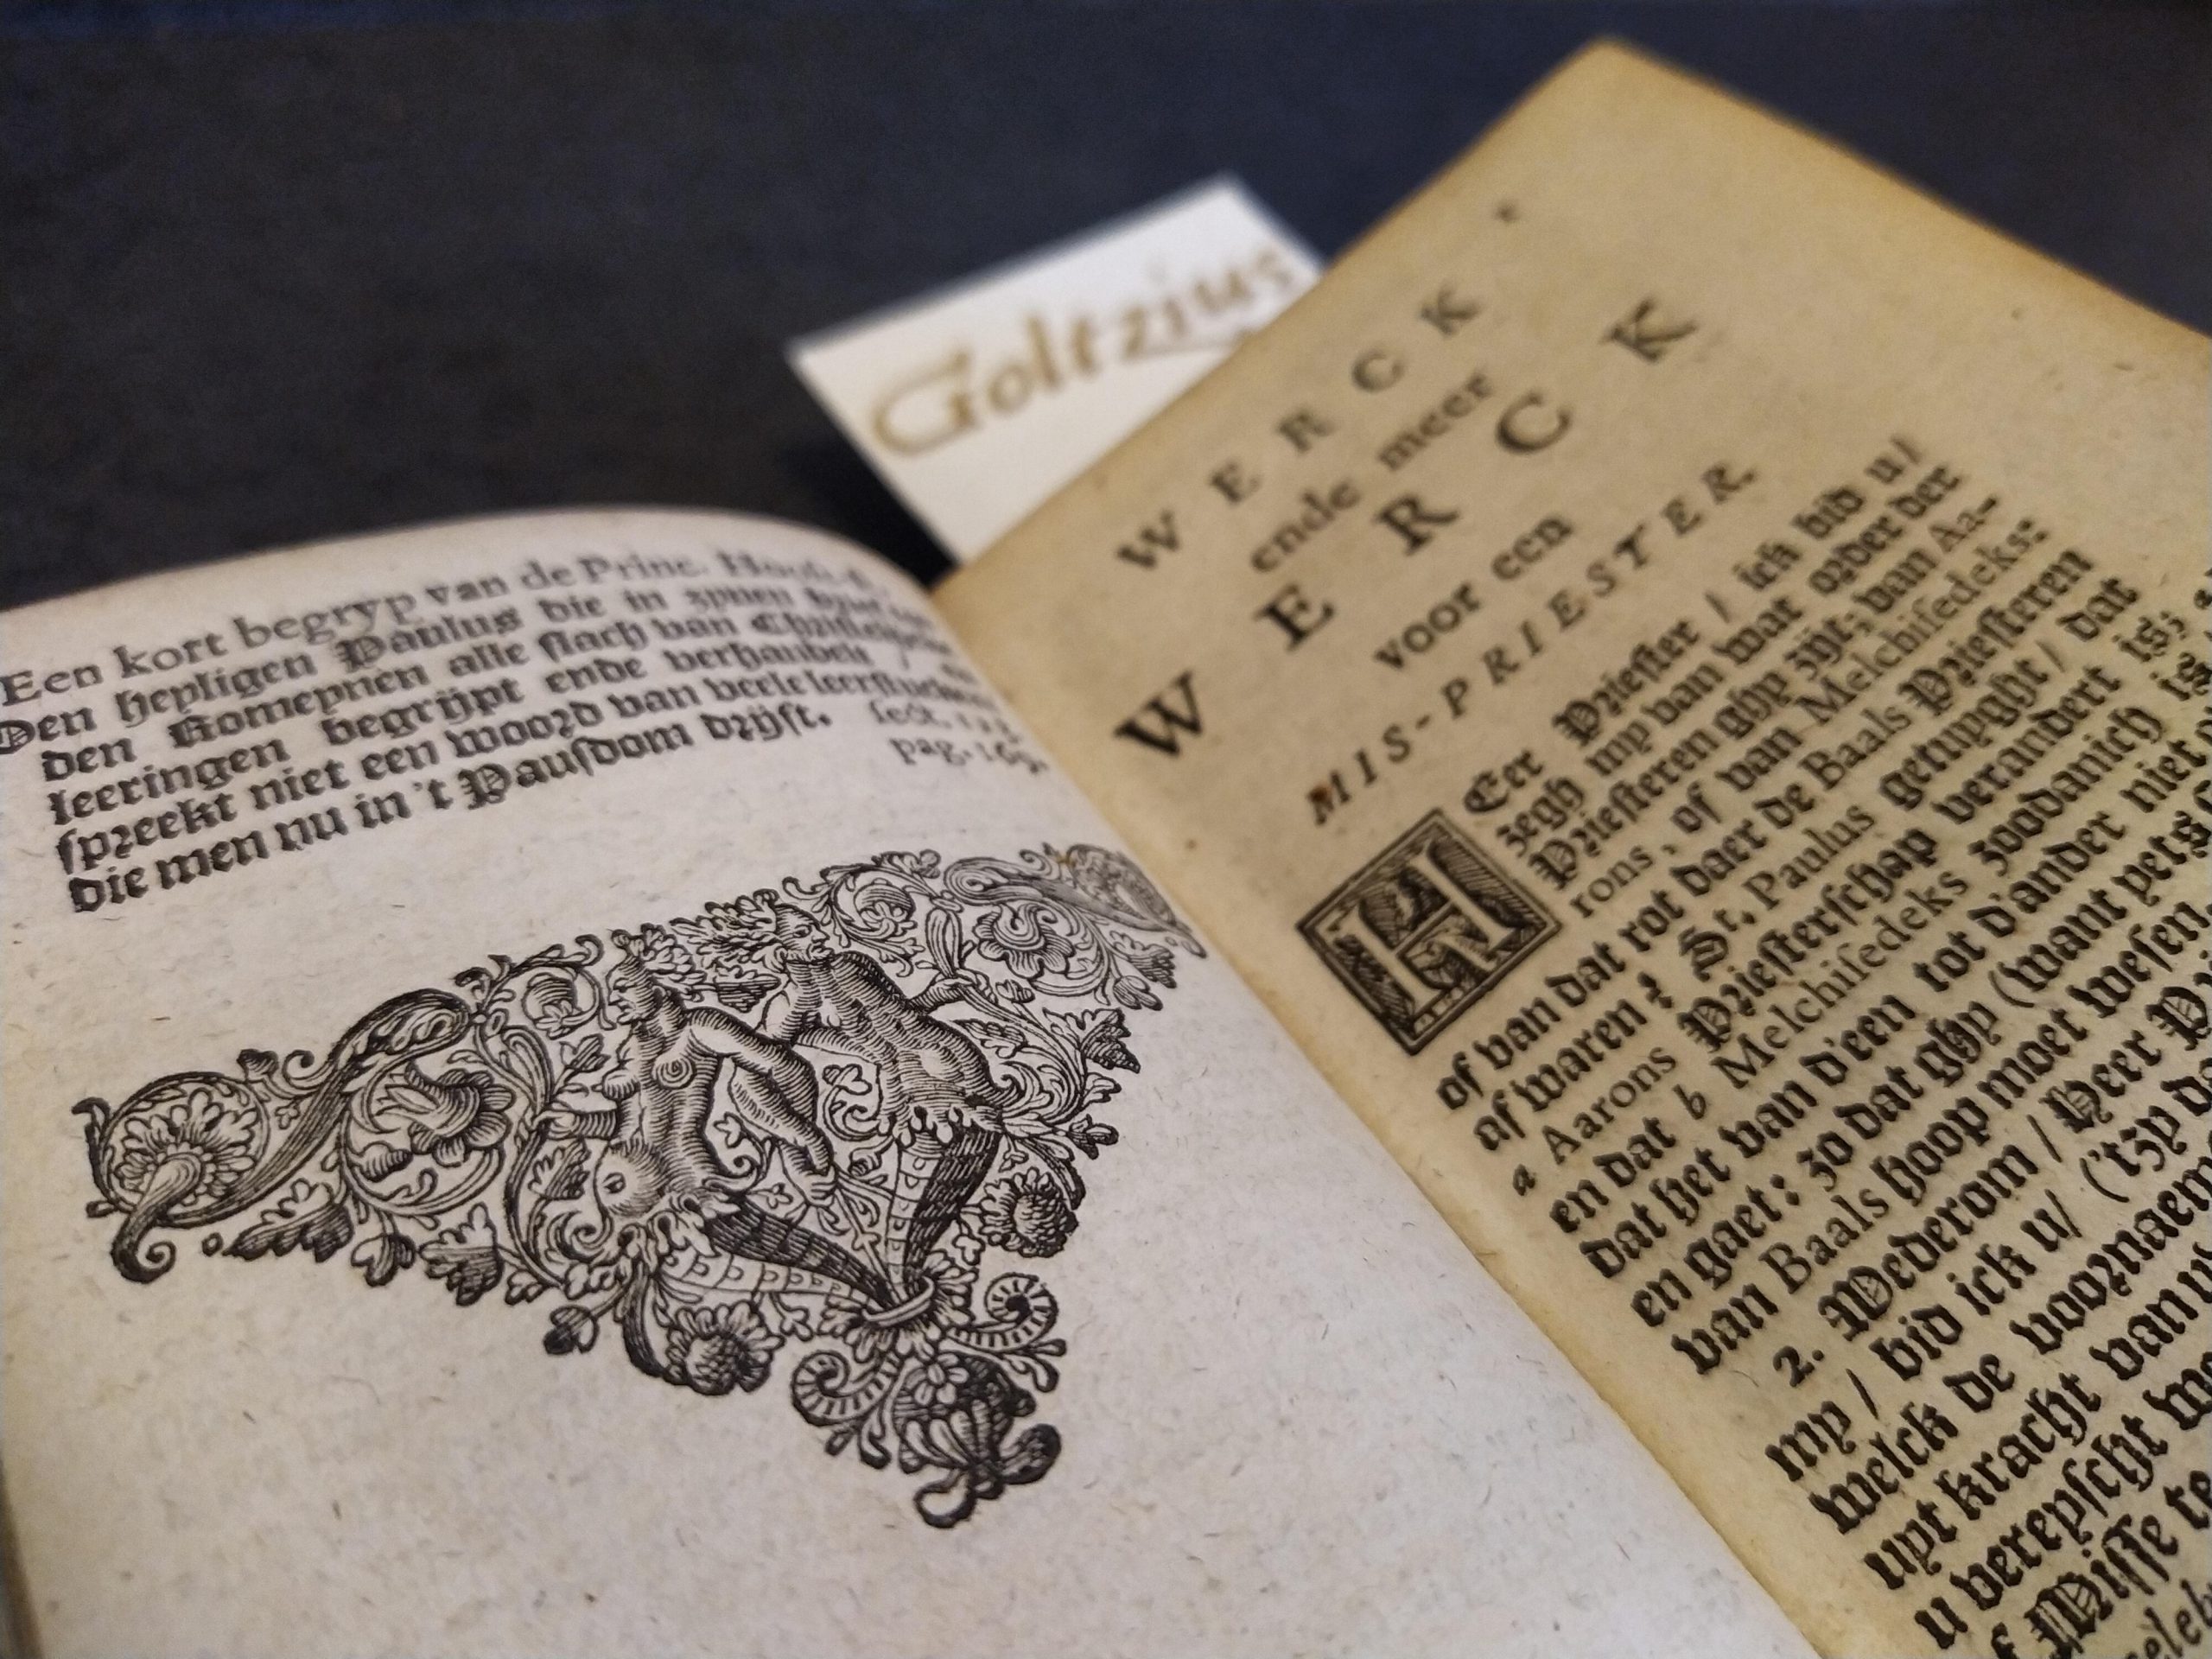 Een kort begryp van de Princ.
Den heyligen Paulus die in zynen
den Romeynen alle slach van
leeringen begrijpt ende verhandelt /
spreekt niet een woord van veele leerstucken
die men nu in 't Pausdom drijft. sect.
pag.
Goltzius
WERCK
ende meer
WERCK
voor een
MIS-PRIESTER.
HEer Priester / ick bid u /
zegh my van wat order der
Priesteren ghy zijt; van Aa-
rons, of van Melchisedeks:
of van dat rot daer de Baals Priesteren
af waren? St. Paulus getuyght / dat
a Aarons Priesterschap verandert is;
en dat b Melchisedeks zoodanich is,
dat het van d'een tot d'ander niet
en gaet: zo dat ghy (want yets
van Baals hoop moet wesen.
2. Wederom / Heer
my / bid ick u / ('t zy
welck de voornaem
uyt kracht van
u vereyscht
Misse te